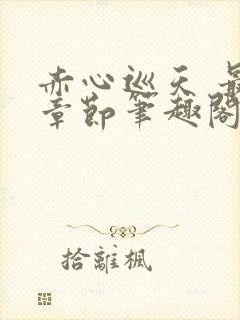 赤心巡天 最
章節筆趣閣
拾離楓